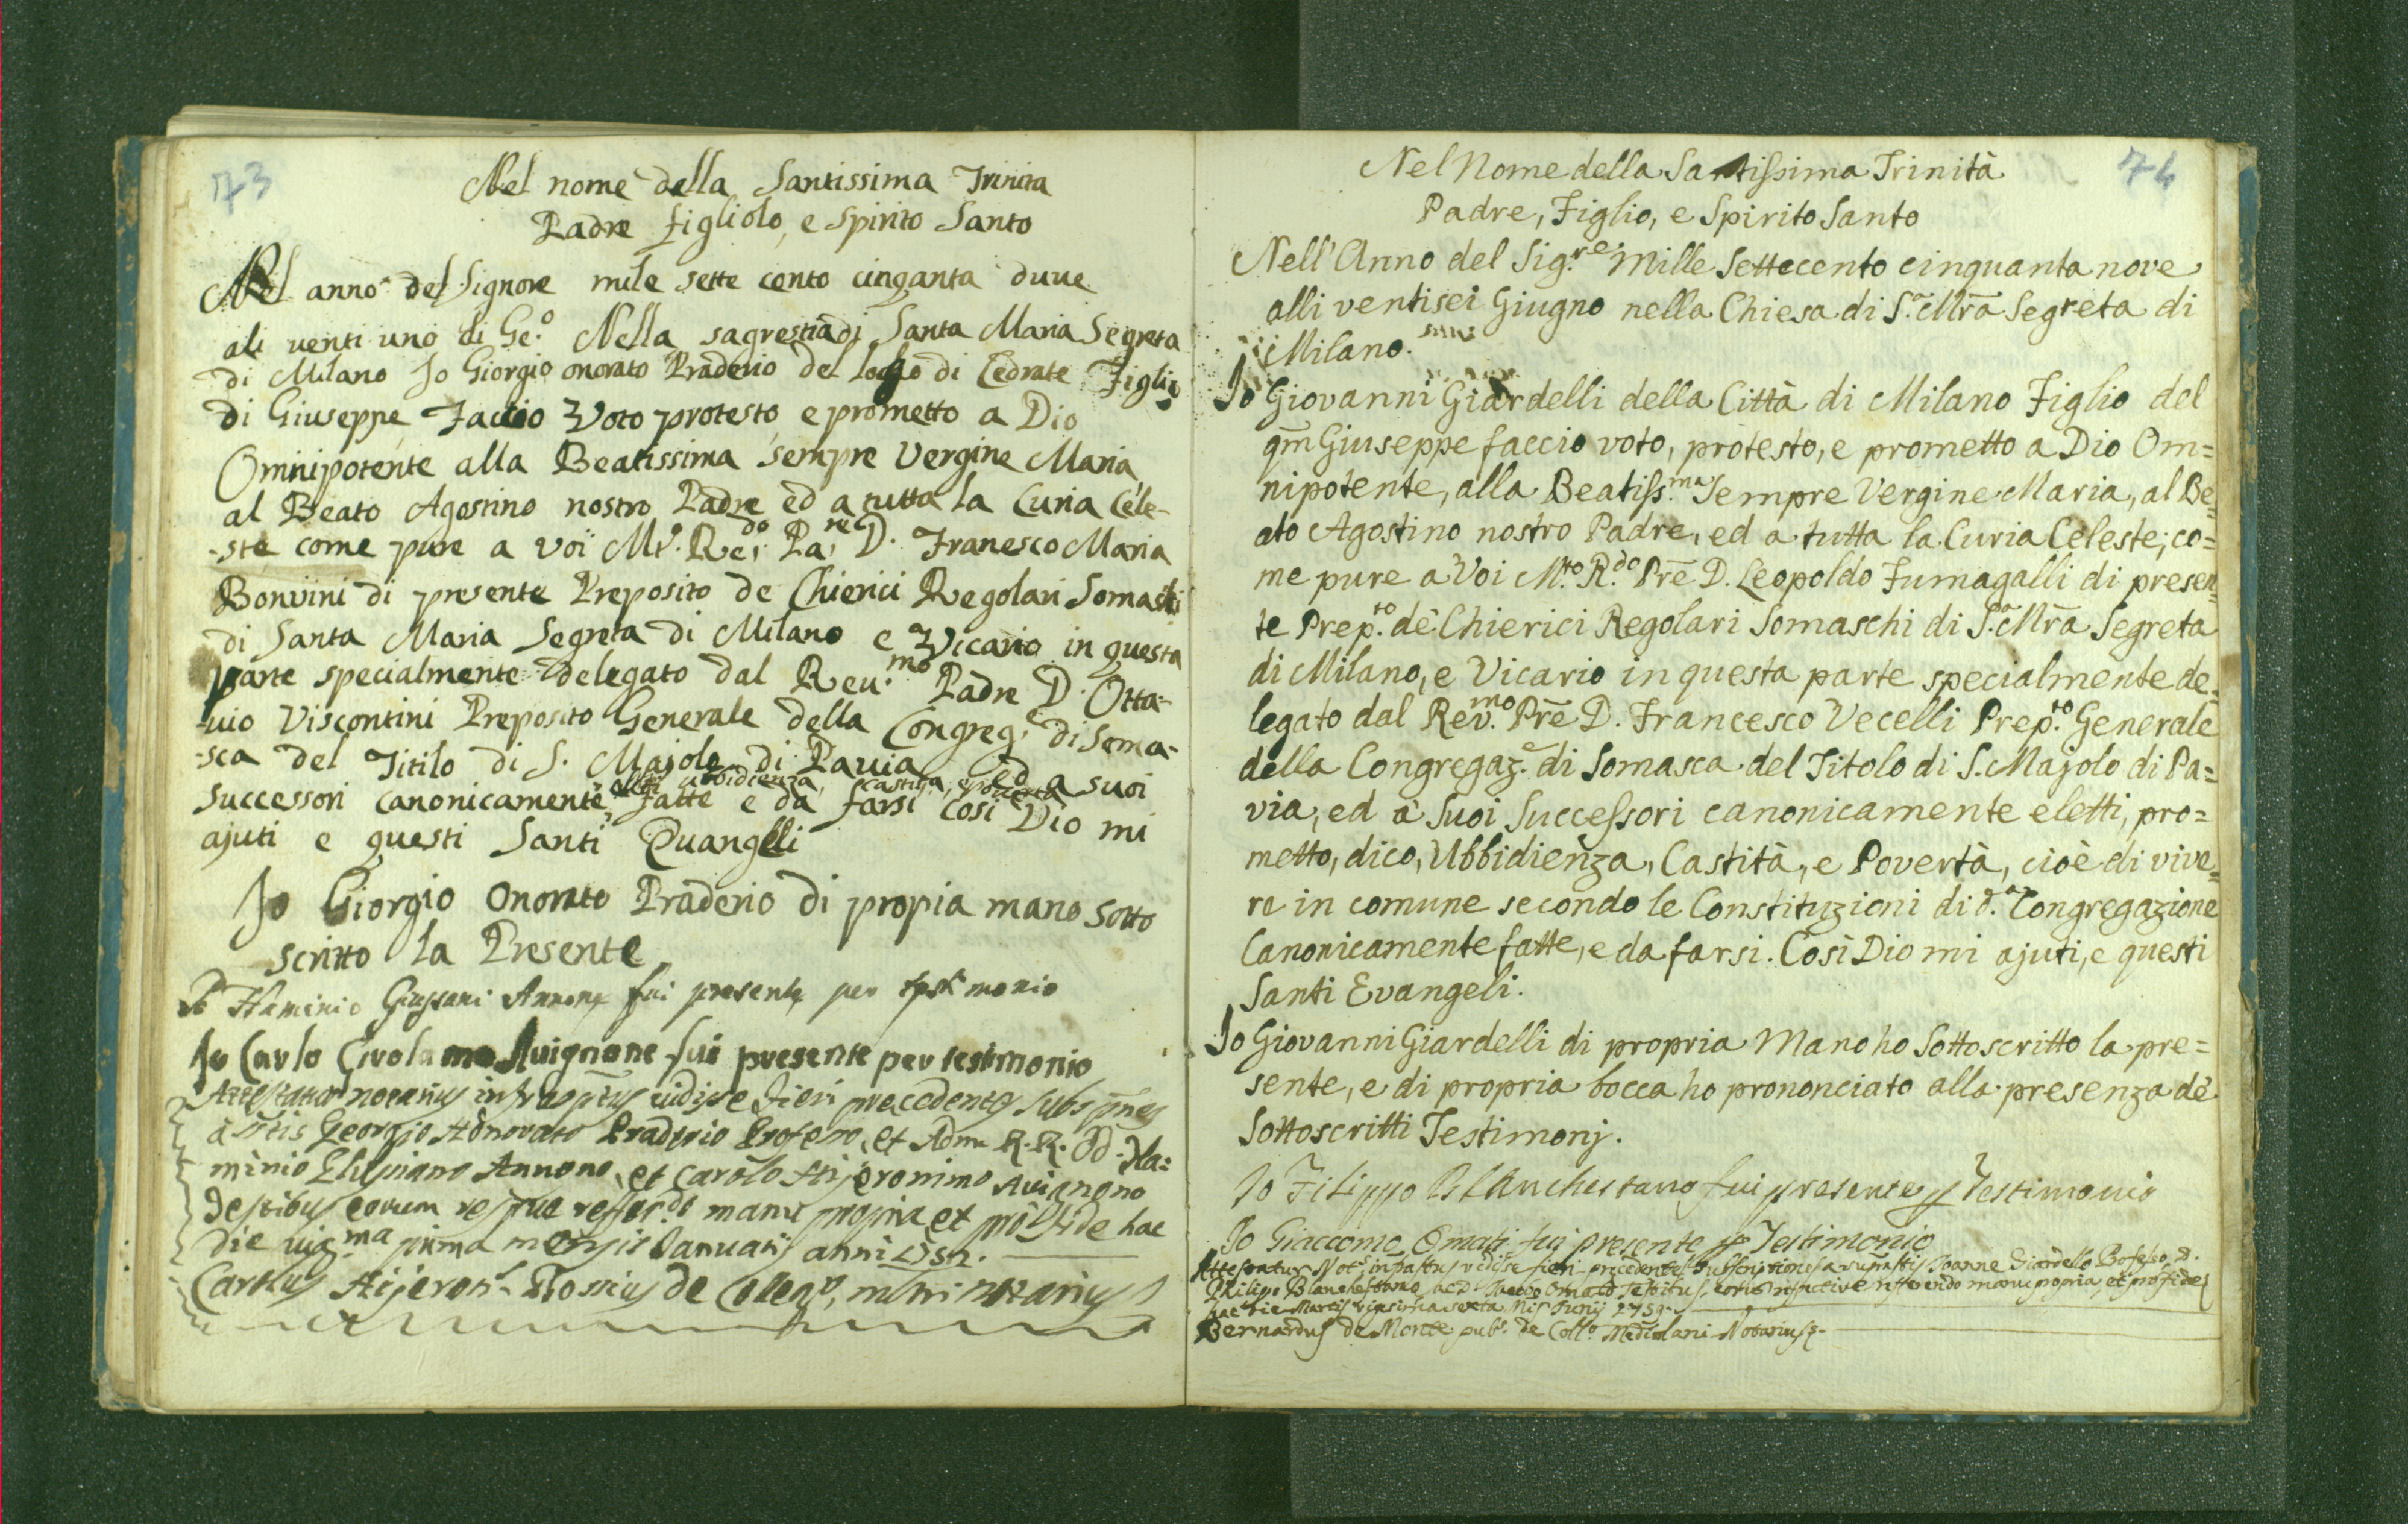 73
Nel nome della Santissima Trinita
Padre figliolo, e Spirito Santo
Nel anno del Signore mile sette cento cinganta duue
ali uenti uno di Ge.º Nella sagrestia di Santa Maria Segreta
di Milano Jo Giorgio onorato Praderio del logho di Cedrate Figlio
di Giuseppe Faccio Voto protesto, e prometto a Dio
Omnipotente alla Beatissima sempre Vergine Maria,
al Beato Agostino nostro Padre ed a tutta la Curia Cele-
-ste come pure a voi Mt.º Re.do Pa.re D. Franesco Maria
Bonvini di presente Preposito de Chierici Regolari Somaschi
di Santa Maria Segreta di Milano e Vicario in questa
parte specialmente delegato dal Reu.mo Padre D. Otta-
-uio Viscontini Preposito Generale della Congreg.e di Soma-
-sca del Titilo di S. Majolo di Pauia ed a suoi
ubbidienza, castita, e pouertà
successori canonicamente fatte e da farsi cosi Dio mi
ajuti e questi Santi Euangelli
Jo Giorgio Onorato Praderio di propia mano sotto
scritto la Presente
Jo Flaminio Giussani Annone fui presente per testimonio
Jo Carlo Girolamo Auignone fui presente per testimonio
Attestatur notarius infrasptus uidisse fieri precedentes subspnes
à Georgio Honorato Praderio Professo, et Adm. R.R. Fla=
minio Glussiano Annono, et Carolo Hijeronimo Auignono
Testibus eorum respue reffer.do manu propria et pro fide hac
die uig.ma prima mensis Januarij anni 1752.
Carolus Hijeron. Rossius de Coleg.º, notarius
74
Nel Nome della Santissima Trinità
Padre, Figlio, e Spirito Santo
Nell'Anno del Sig.re Mille Settecento cinquanta nove
alli ventisei Giugno nella Chiesa di S.a Mra Segreta di
Milano.
Jo Giovanni Giardelli della Città di Milano Figlio del
qm Giuseppe faccio voto, protesto, e prometto a Dio Om=
nipotente, alla Beatiss.ma Sempre Vergine Maria, al Be=
ato Agostino nostro Padre, ed a tutta la Curia Celeste; co=
me pure a Voi M.to R.do Pre D. Leopoldo Fumagalli di presen=
te Prep.to dè Chierici Regolari Somaschi di S.a Mra Segreta
di Milano, e Vicario in questa parte specialmente de=
legato dal Rev.mo Pre D. Francesco Vecelli Prep.to Generale
della Congregaz.e di Somasca del Titolo di S. Majolo di Pa=
via, ed à Suoi Successori canonicamente eletti, pro=
metto, dico, Ubbidienza, Castità, e Povertà, cioè di vive=
re in comune secondo le Constituzioni di d.a Congregazione
Canonicamente fatte, e da farsi. Così Dio mi ajuti, e questi
Santi Evangeli.
Jo Giovanni Giardelli di propria Mano ho Sottoscritto la pre=
sente, e di propria bocca ho prononciato alla presenza dè
Sottoscritti Testimonj.
Jo Filippo Blanchestano fui presente p Testimonio
Jo Giaccomo Omati fui presente p Testimonio
Attestatur Not.s infrastus vidisse fieri precedentes Subscriptiones a suprastis Joanne Giardello Professo, D.
Philippo Blanchestano ac D. Jacobo Omato Testibus, eorum respective refferendo manu propria, et pro fide
hac die Martis vigesima sexta Mis Junij 1759.
Bernardus de Monte pub.s de Coll.o Mediolani Notarius